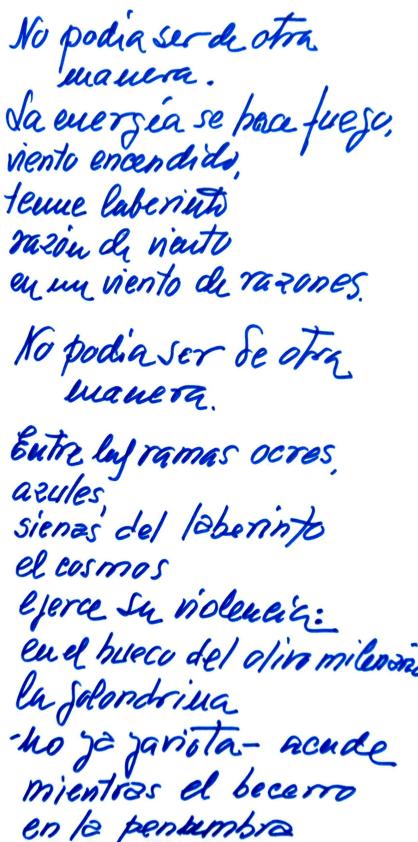 No podía ser de otra
manera.
La energía se hace fuego,
viento encendido,
tenue laberinto
razón de viento
en un viento de razones.
No podía ser de otra
manera.
Entre las ramas ocres,
azules,
sienas del laberinto
el cosmos
ejerce su violencia:
en el hueco del olivo milenario
la golondrina
-no ya gaviota- acude
mientras el becerro
en la penumbra